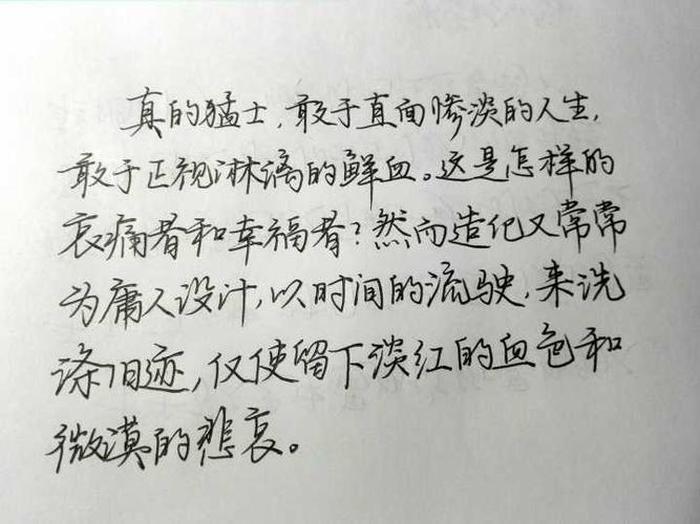 真的猛士，敢于直面惨淡的人生，
敢于正视淋漓的鲜血。这是怎样的
哀痛者和幸福者？然而造化又常常
为庸人设计，以时间的流驶，来洗
涤旧迹，仅使留下淡红的血色和
微漠的悲哀。